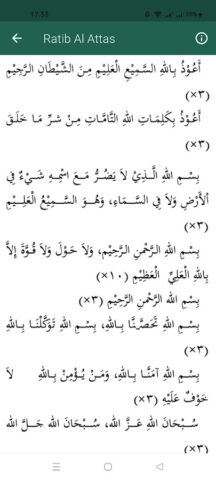 17.33
59%
Ratib Al Attas
أَعُوْذُ بِاللهِ السَّمِيْعِ الْعَلِيْمِ مِنَ الشَّيْطَانِ الرَّجِيْمِ
(×٣)
أَعُوْذُ بِكَلِمَاتِ اللهِ التَّامَّاتِ مِنْ شَرِّ مَا خَلَقَ
(×٣)
بِسْمِ اللهِ الَّذِيْ لاَ يَضُرُّ مَعَ اسْمِهِ شَيْءٌ فِي
الْأَرْضِ وَلاَ فِي السَّمَاءِ، وَهُوَ السَّمِيْعُ الْعَلِيْمُ
(×٣)
بِسْمِ اللهِ الرَّحْمٰنِ الرَّحِيْمِ، وَلاَ حَوْلَ وَلاَ قُوَّةَ إِلاَّ
بِاللهِ الْعَلِيِّ الْعَظِيْمِ (×١٠)
بِسْمِ اللهِ الرَّحْمٰنِ الرَّحِيْمِ (×٣)
بِسْمِ اللهِ تَحَصَّنَّا بِاللهِ، بِسْمِ اللهِ تَوَكَّلْنَا بِاللهِ
(×٣)
بِسْمِ اللهِ آمَنَّا بِاللهِ، وَمَنْ يُؤْمِنْ بِاللهِ لاَ
خَوْفٌ عَلَيْهِ (×٣)
سُبْحَانَ اللهِ عَزَّ اللهُ، سُبْحَانَ اللهِ جَلَّ اللهُ
(×٣)